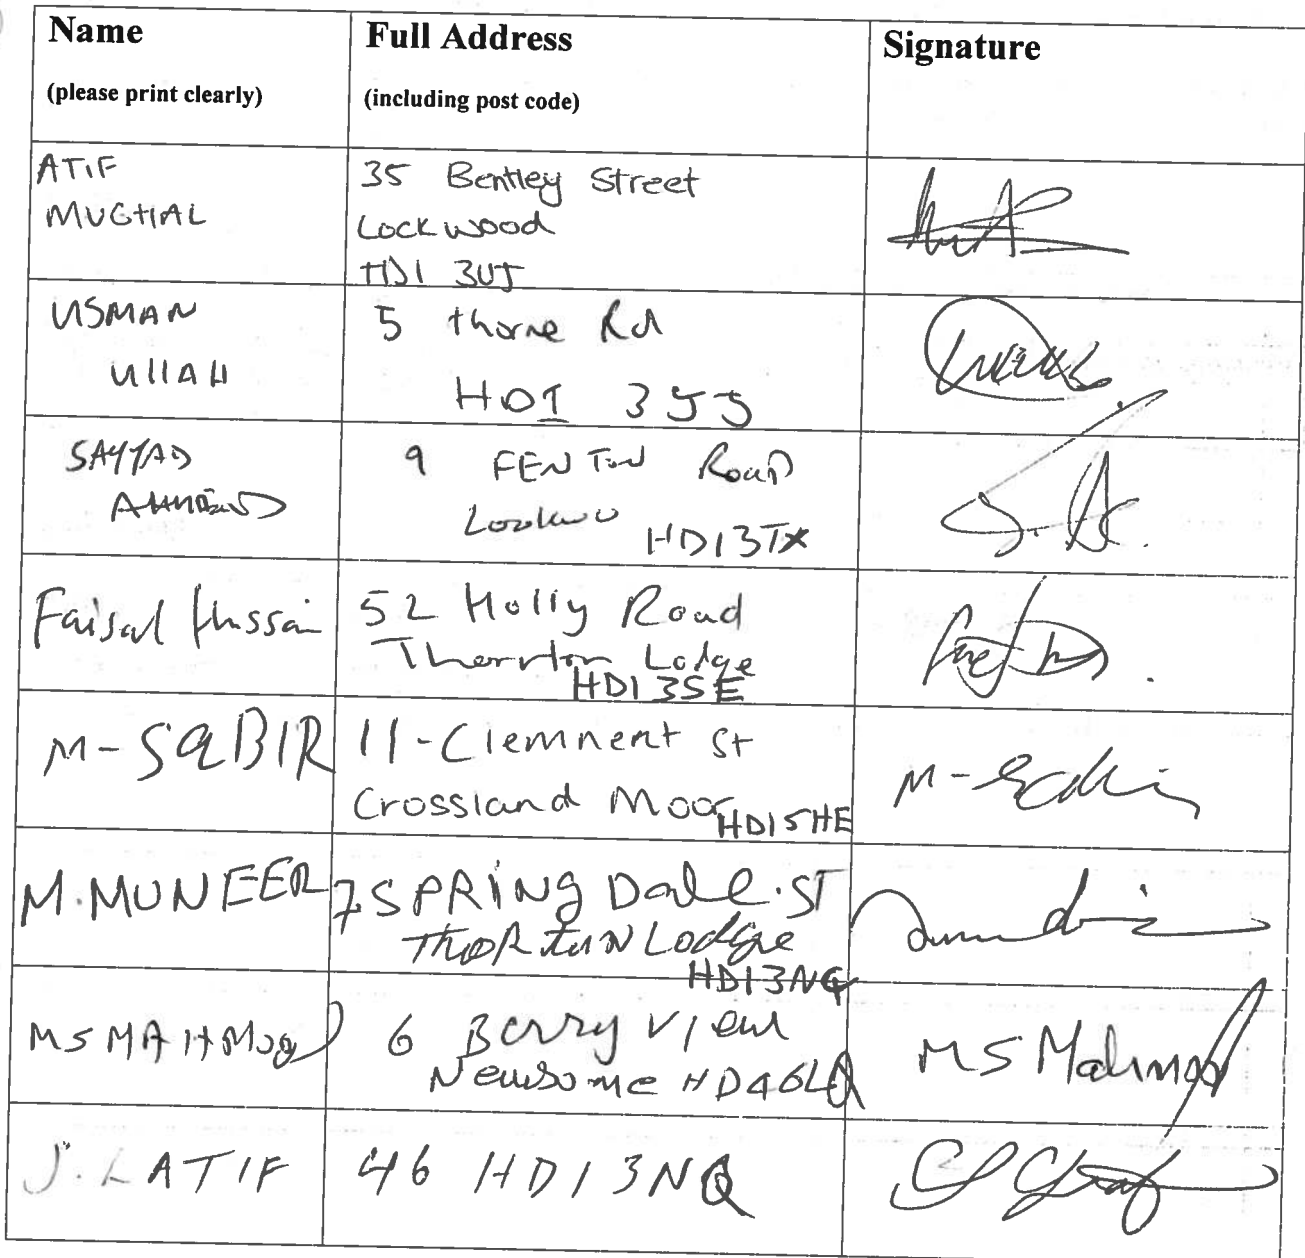 Name
(please print clearly)
Full Address
(including post code)
Signature
ATIF
MUGHAL
35 Bentley Street
Lockwood
HD1 3UJ
USMAN
UllAH
5 thorne Rd
HD1 3JJ
SAYYAD
AHMED
9 FENTON ROAD
HD13TX
Faisal Hussain
52 Holly Road
Thornton Lodge
HD1 3SE
M-SaBIR
11-Clemnent St
Crossland Moor
HD1 5HE
M-Sabir
M.MUNEER
7 SPRiNg Dale.ST
ThoRtuN Lodge
HD1 3NQ
MS MAHMood
6 Berry View
Newsome HD46LQ
MS Mahmood
J.LATIF
46 HD1 3NQ